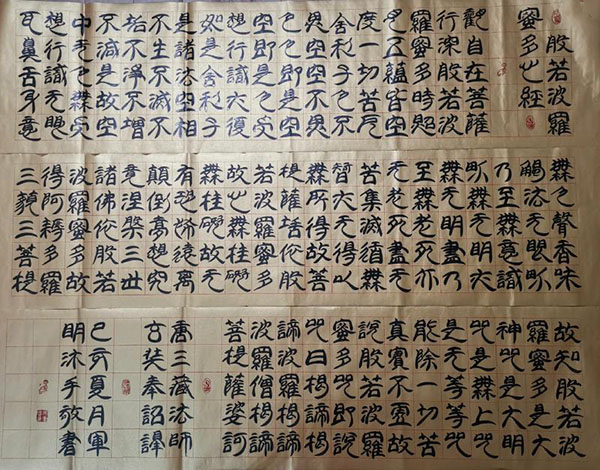 般若波羅
蜜多心經
觀自在菩薩
行深般若波
羅蜜多時照
見五蘊皆空
度一切苦厄
舍利子色不
異空空不異
色色即是空
空即是色受
想行識亦復
如是舍利子
是諸法空相
不生不滅不
垢不淨不增
不減是故空
中无色無受
想行識无眼
耳鼻舌身意
無色聲香味
觸法无眼界
乃至無意識
界无無明亦
無无明盡乃
至無老死亦
无老死盡無
苦集滅道無
智亦无得以
無所得故菩
提薩埵依般
若波羅蜜多
故心無罣礙
無罣礙故无
有恐怖遠離
顛倒夢想究
竟涅槃三世
諸佛依般若
波羅蜜多故
得阿耨多羅
三藐三菩提
故知般若波
羅蜜多是大
神咒是大明
咒是無上咒
是无等等咒
能除一切苦
真實不虛故
說般若波羅
蜜多咒即說
咒曰揭諦揭
諦波羅揭諦
波羅僧揭諦
菩提薩婆訶
唐三藏法師
玄奘奉詔譯
己亥夏月軍
明沐手敬書